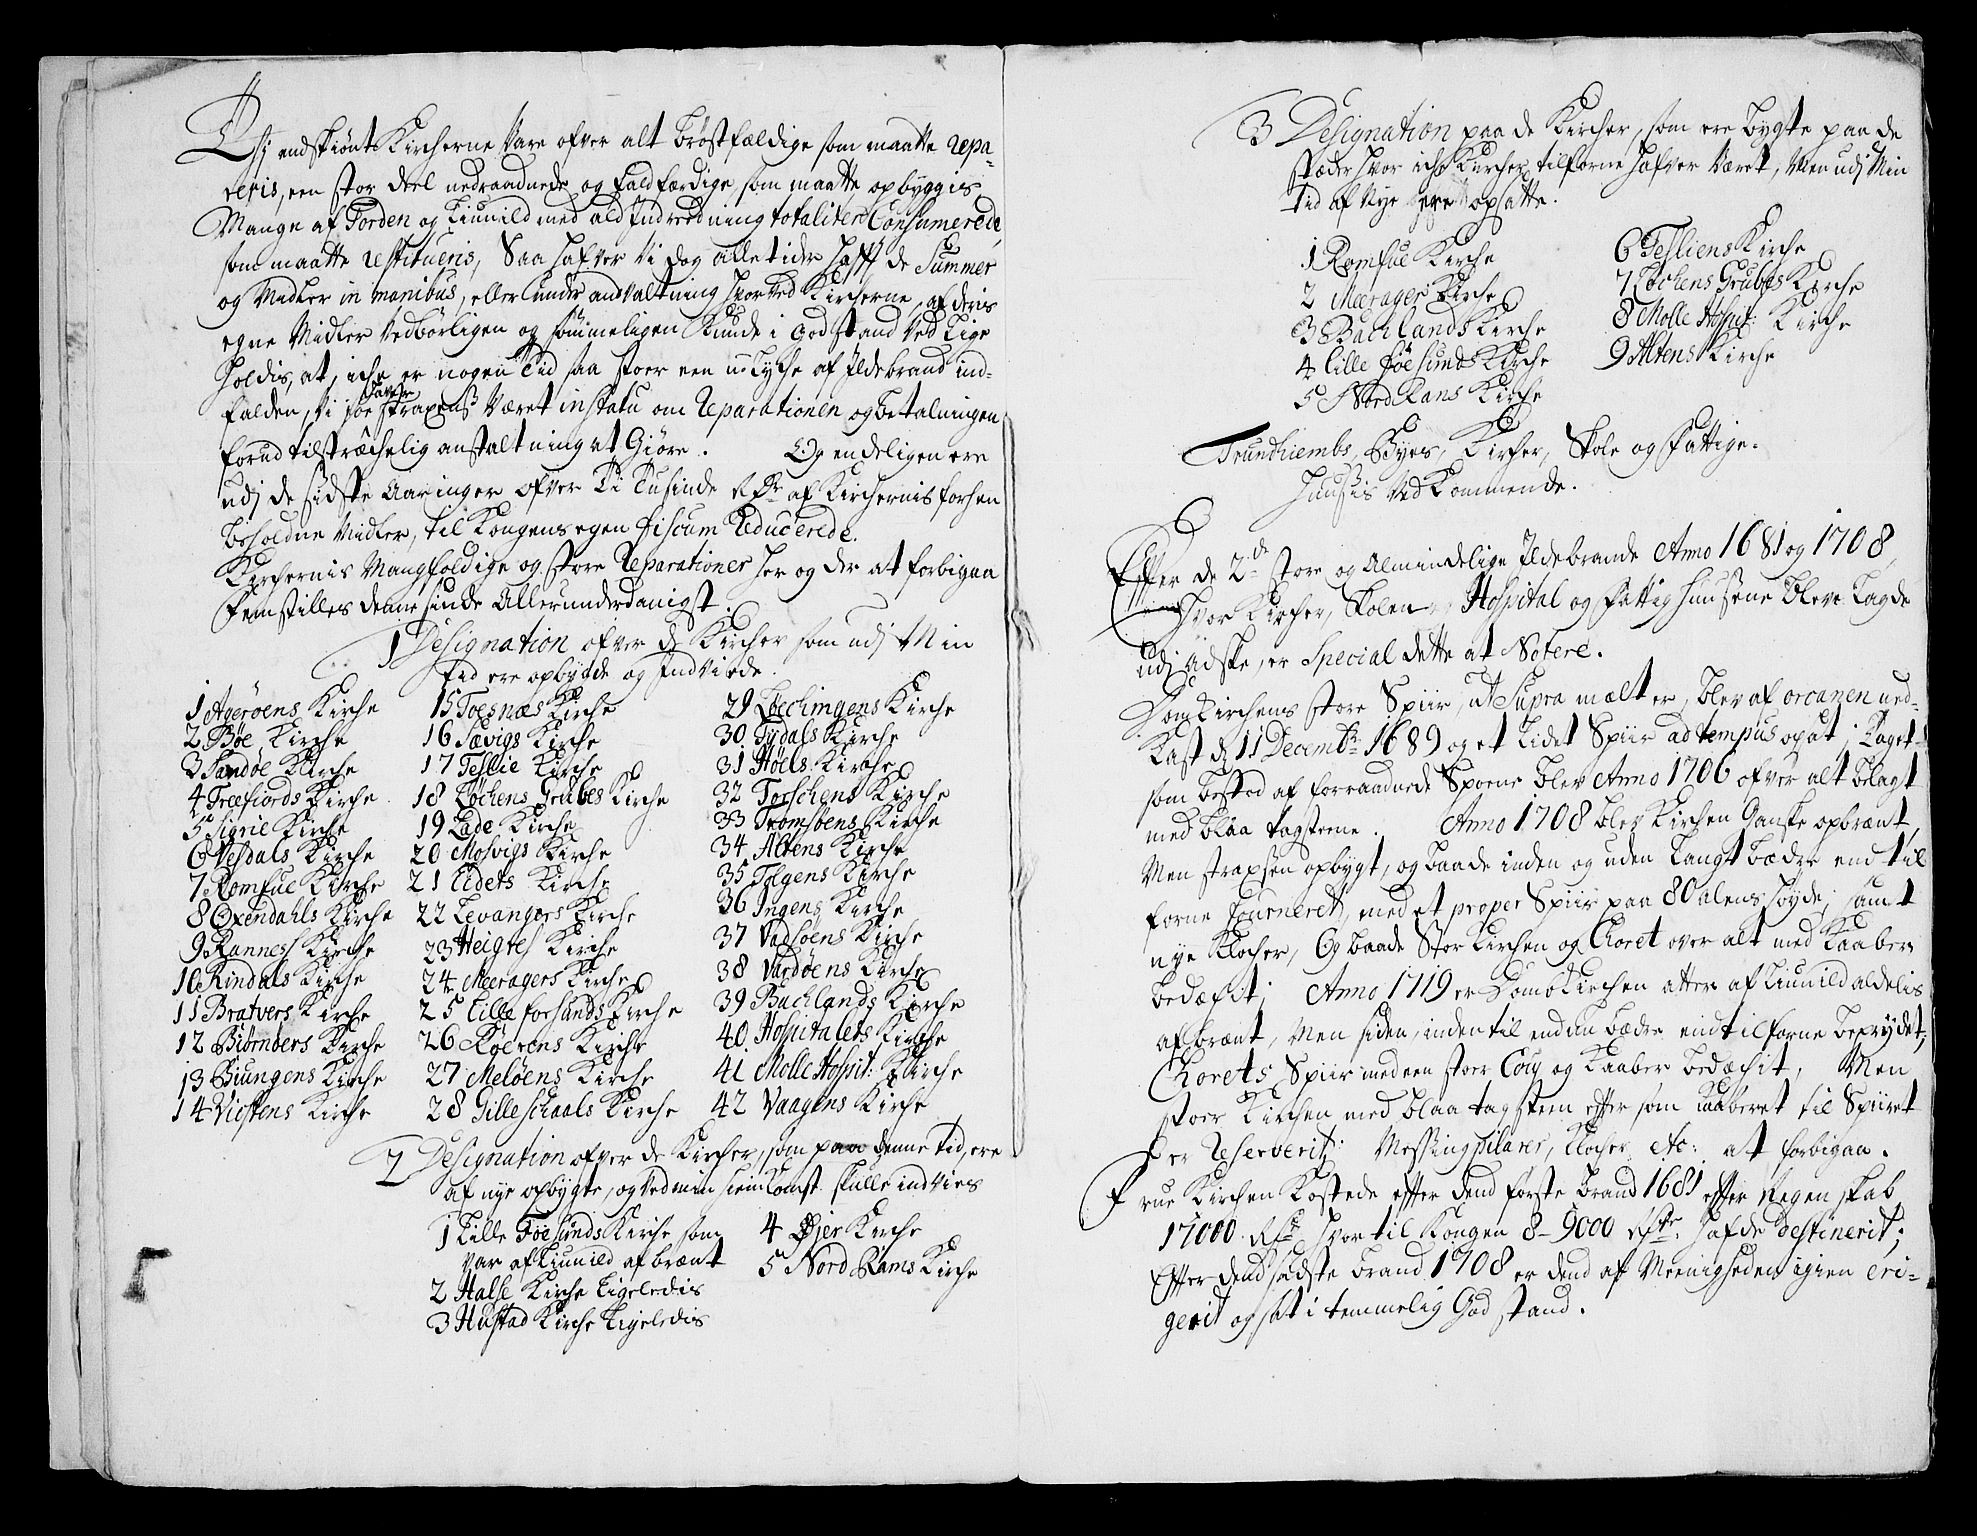 Og endskiönt Kircherne Vare ofver alt bröstfældige som maatte repa-
reris, een stor deel nedraadnede og faldfærdige, som maatte opbyggis,
Mange af Torden og Liunild med ald Indredning totaliter Consumerede,
som maatte restitueris, Saa hafver Vi dog alle tider hafft de Summer
og Midler in manibus, eller under andvaltning hvorved Kircherne, af deris
egne Midler Vedbörligen og sömmeligen Kunde i god stand Ved Lige
holdis, at, iche er nogen Tid saa stoer een u-lyche af Ildebrand ind-
falden, Vi jo hafver straxens Været in statu om Reparationen og betalningen
forud tilstræchelig anstaltning at Giöre. Og endeligen ere
udj de sidste Aaringer ofver Ti Tusinde Rdr af Kirchernis forhen
beholdne Midler, til Kongens egen fiscum Reducerede.
Kirchernis Mangfoldige og store Reparationer her og der at forbigaa
fremstilles denne sinde Allerunderdanigst.
1 Designation ofver de Kircher som udj Min
tid ere opbygde og Indviede.
1 Agerøens Kirche
2 Bøe Kirche
3 Sandøe Kirche
4 Treefiords Kirche
5 Sigrie Kirche
6 Vesdals Kirche
7 Romfue Kirche
8 Oxendahls Kirche
9 Rannes Kirche
10 Rindals Kirche
11 Bratvers Kirche
12 Biörnöers Kirche
13 Biungens Kirche
14 Viestens Kirche
15 Foesnæs Kirche
16 Sævigs Kirche
17 Feslie Kirche
18 Løchens Grubes Kirche
19 Lade Kirche
20 Mosvigs Kirche
21 Eidets Kirche
22 Levangers Kirche
23 Heigres Kirche
24 Meeragers Kirche
25 Lille forsands Kirche
26 Röerens Kirche
27 Meløens Kirche
28 Gilleschaals Kirche
29 Loechingens Kirche
30 Tydals Kirche
31 Høels Kirche
32 Torschens Kirche
33 Tromsöens Kirche
34 Altens Kirche
35 Tylgens Kirche
36 Ingens Kirche
37 Vadsöens Kirche
38 Vardöens Kirche
39 Bachlands Kirche
40 Hospitalets Kirche
41 Molle Hospit: Kirche
42 Vaagens Kirche
2 Designation ofver de Kircher, som paa denne tid, ere
af nye opbygte, og ved min hiemkomst skulle indvies
1 Lille Föesunds Kirche som
var af Liunild afbrænt
2 Halse Kirche Ligeledis
3 Hustad Kirche Ligeledis
4 Øjer Kirche
5 Nord Rams Kirche
3 Designation paa de Kircher, som ere bygte paa de
stæder hvor iche Kircher tilforne hafver Været, Men udj Min
tid af Nye ere opsatte.
1 Romfue Kirche
2 Meerager Kirche
3 Bachlands Kirche
4 Lille föesunds Kirche
5 Nord Rans Kirche
6 Fesliens Kirche
7 Løchens Grubes Kirche
8 Molle Hospit: Kirche
9 Altens Kirche
Trundhiembs, Byes, Kircher, Skole og fattige-
huusis Ved Kommende.
Effter de 2de store og Almindelige Ildebrande Anno 1681 og 1708,
hvor Kircher, Skolen, Hospital og Fattig huusene bleve Lagde
udj Adske, er Special dette at Notere.
Domkirchens store Spiir, ut Supra mælt er, blev af orcanen ned-
Kast d 11 Decembr 1689 og et Lidet Spiir ad tempus opsat; Taget
som bestod af forraadnede Spoener blev Anno 1706 ofver alt belagt
med blaa tagsteene. Anno 1708 blev Kirchen Ganske opbrænt,
Men straxsen opbygt, og baade inden og uden Langt bædre end til
forne fourneret, med et proper Spiir paa 80 alens höyde; samt
nye Klocher, Og baade Stor Kirchen og Choret over alt med Kaaber
bedæchit; Anno 1719 er Dom Kirchen atter af Liunild aldelis
afbrænt, Men siden, inden til endnu bædre end tilforne beprydet,
Chorets Spiir med een stoer Coup og Kaaber bedæchit, Men
stoer Kirchen med blaa tagsteen effter som Kaaberet til Spiiret
er Reserverit. Messingpilarer, Klocher etc: at forbigaa.
Frue Kirchen Kostede effter dend förste brand 1681 effter Regenskab
17000 Rdr hvor til Kongen 8-9000 Rdr. hafde destinerit;
Effter dend sidste brand 1708 er dend af Meenigheden igien eri-
gerit og sat i temmelig God stand.